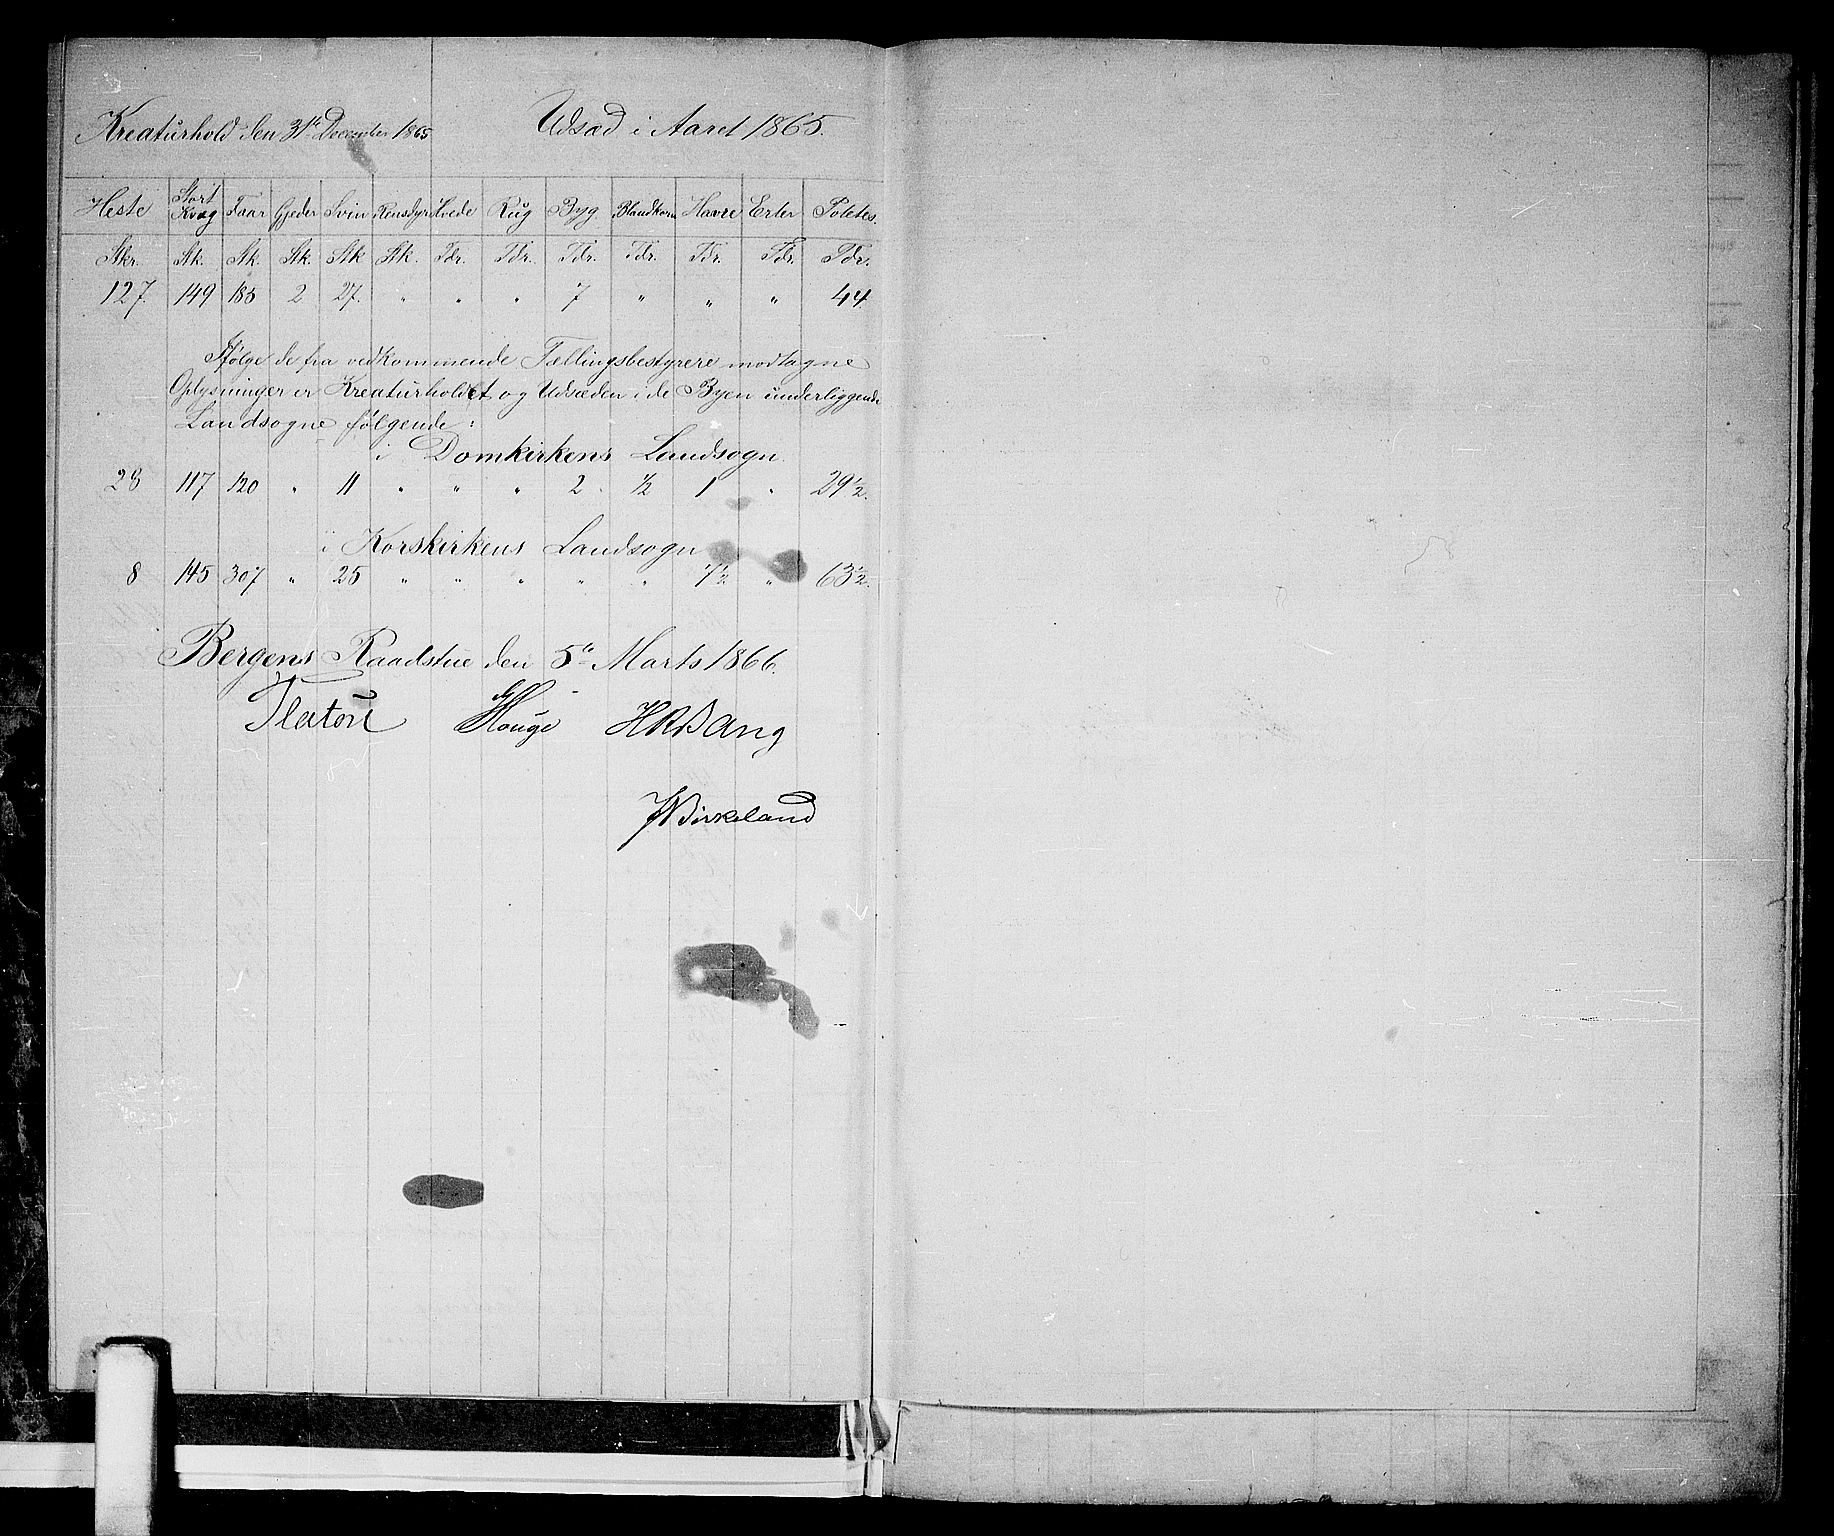 Kreaturhold den 31te December 1865 Udsæd i Aaret 1865.
Heste Stort Kvæg Faar Gjeder Svin Rensdyr Hvede Rug Byg Blandkorn Havre Erter Poletes.
Stkr. Stk. Stk. Stk. Stk Stk. Tdr. Tdr. Tdr. Tdr. Tdr. Tdr. Tdr.
127. 149 185 2 27. " " " 7 " " " 44
Ifølge de fra vedkommende Tællingsbestyrere modtagne
Oplysninger er Kreaturholdet og Udsæden i de Byen underliggende
Landsogne følgende:
i Domkirkens Landsogn
28 117 120 " 11 " " " 2 ½ 1 " 29½.
i Korskirkens Landsogn
8 145 307 " 25 " " " " " 7½ " 63½.
Bergens Raadstue den 5te Marts 1866.
Platou Houge HRBang
Birkeland